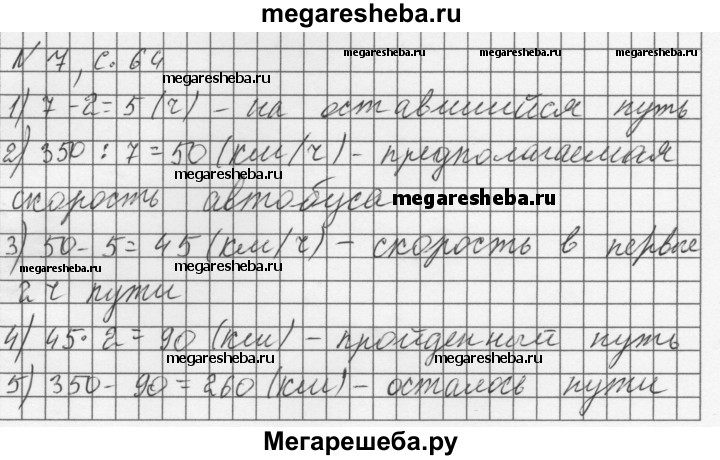 megaresheba.ru
N 7, с. 64
megaresheba.ru megaresheba.ru
megaresheba.ru
1) 7 - 2 = 5 (ч) - на оставшийся путь
2) 350 : 7 = 50 (км/ч) - предполагаемая
megaresheba.ru
скорость автобуса megaresheba.ru
3) 50 - 5 = 45 (км/ч) - скорость в первые
megaresheba.ru megaresheba.ru megaresheba.ru
2 ч пути
4) 45 · 2 = 90 (км) - пройденный путь
megaresheba.ru megaresheba.ru
5) 350 - 90 = 260 (км) - осталось пути
Мегарешеба.ру